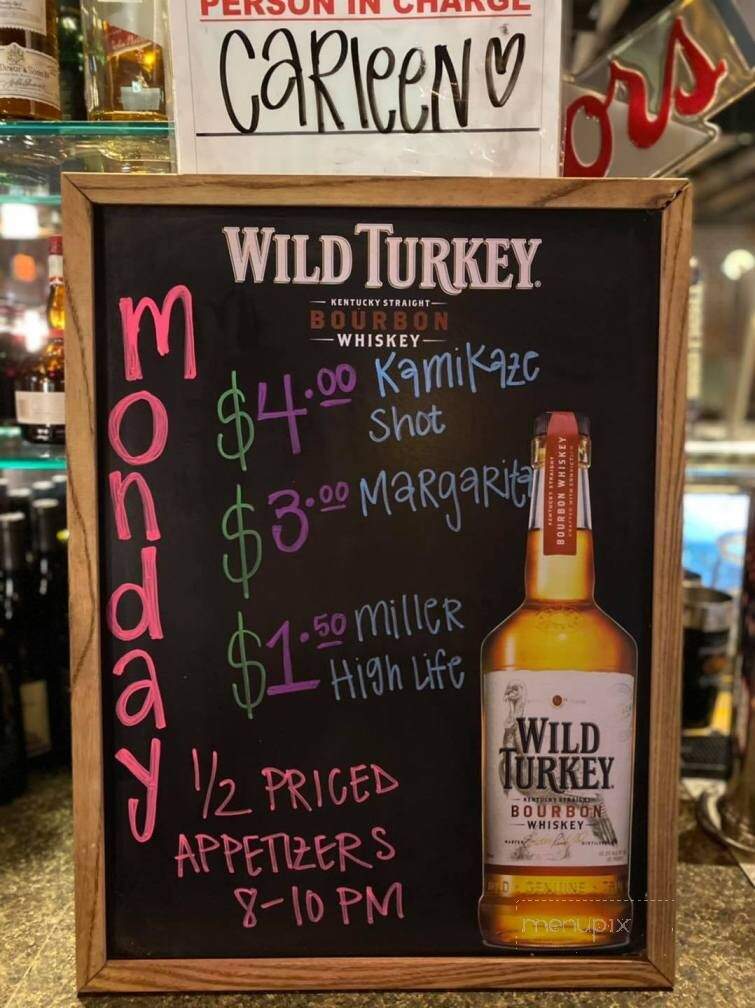 PERSON IN CHARGE
CARleeN♡
ors
WILD TURKEY.
KENTUCKY STRAIGHT
BOURBON
WHISKEY
Monday
$4.00 Kamikaze
Shot
$3.00 MaRgaRita
$1.50 milleR
High Life
1/2 PRICED
APPETIZERS
8-10 PM
KENTUCKY STRAIGHT
BOURBON WHISKEY
WILD
TURKEY.
KENTUCKY STRAIGHT
BOURBON
WHISKEY
GENUINE
menupix